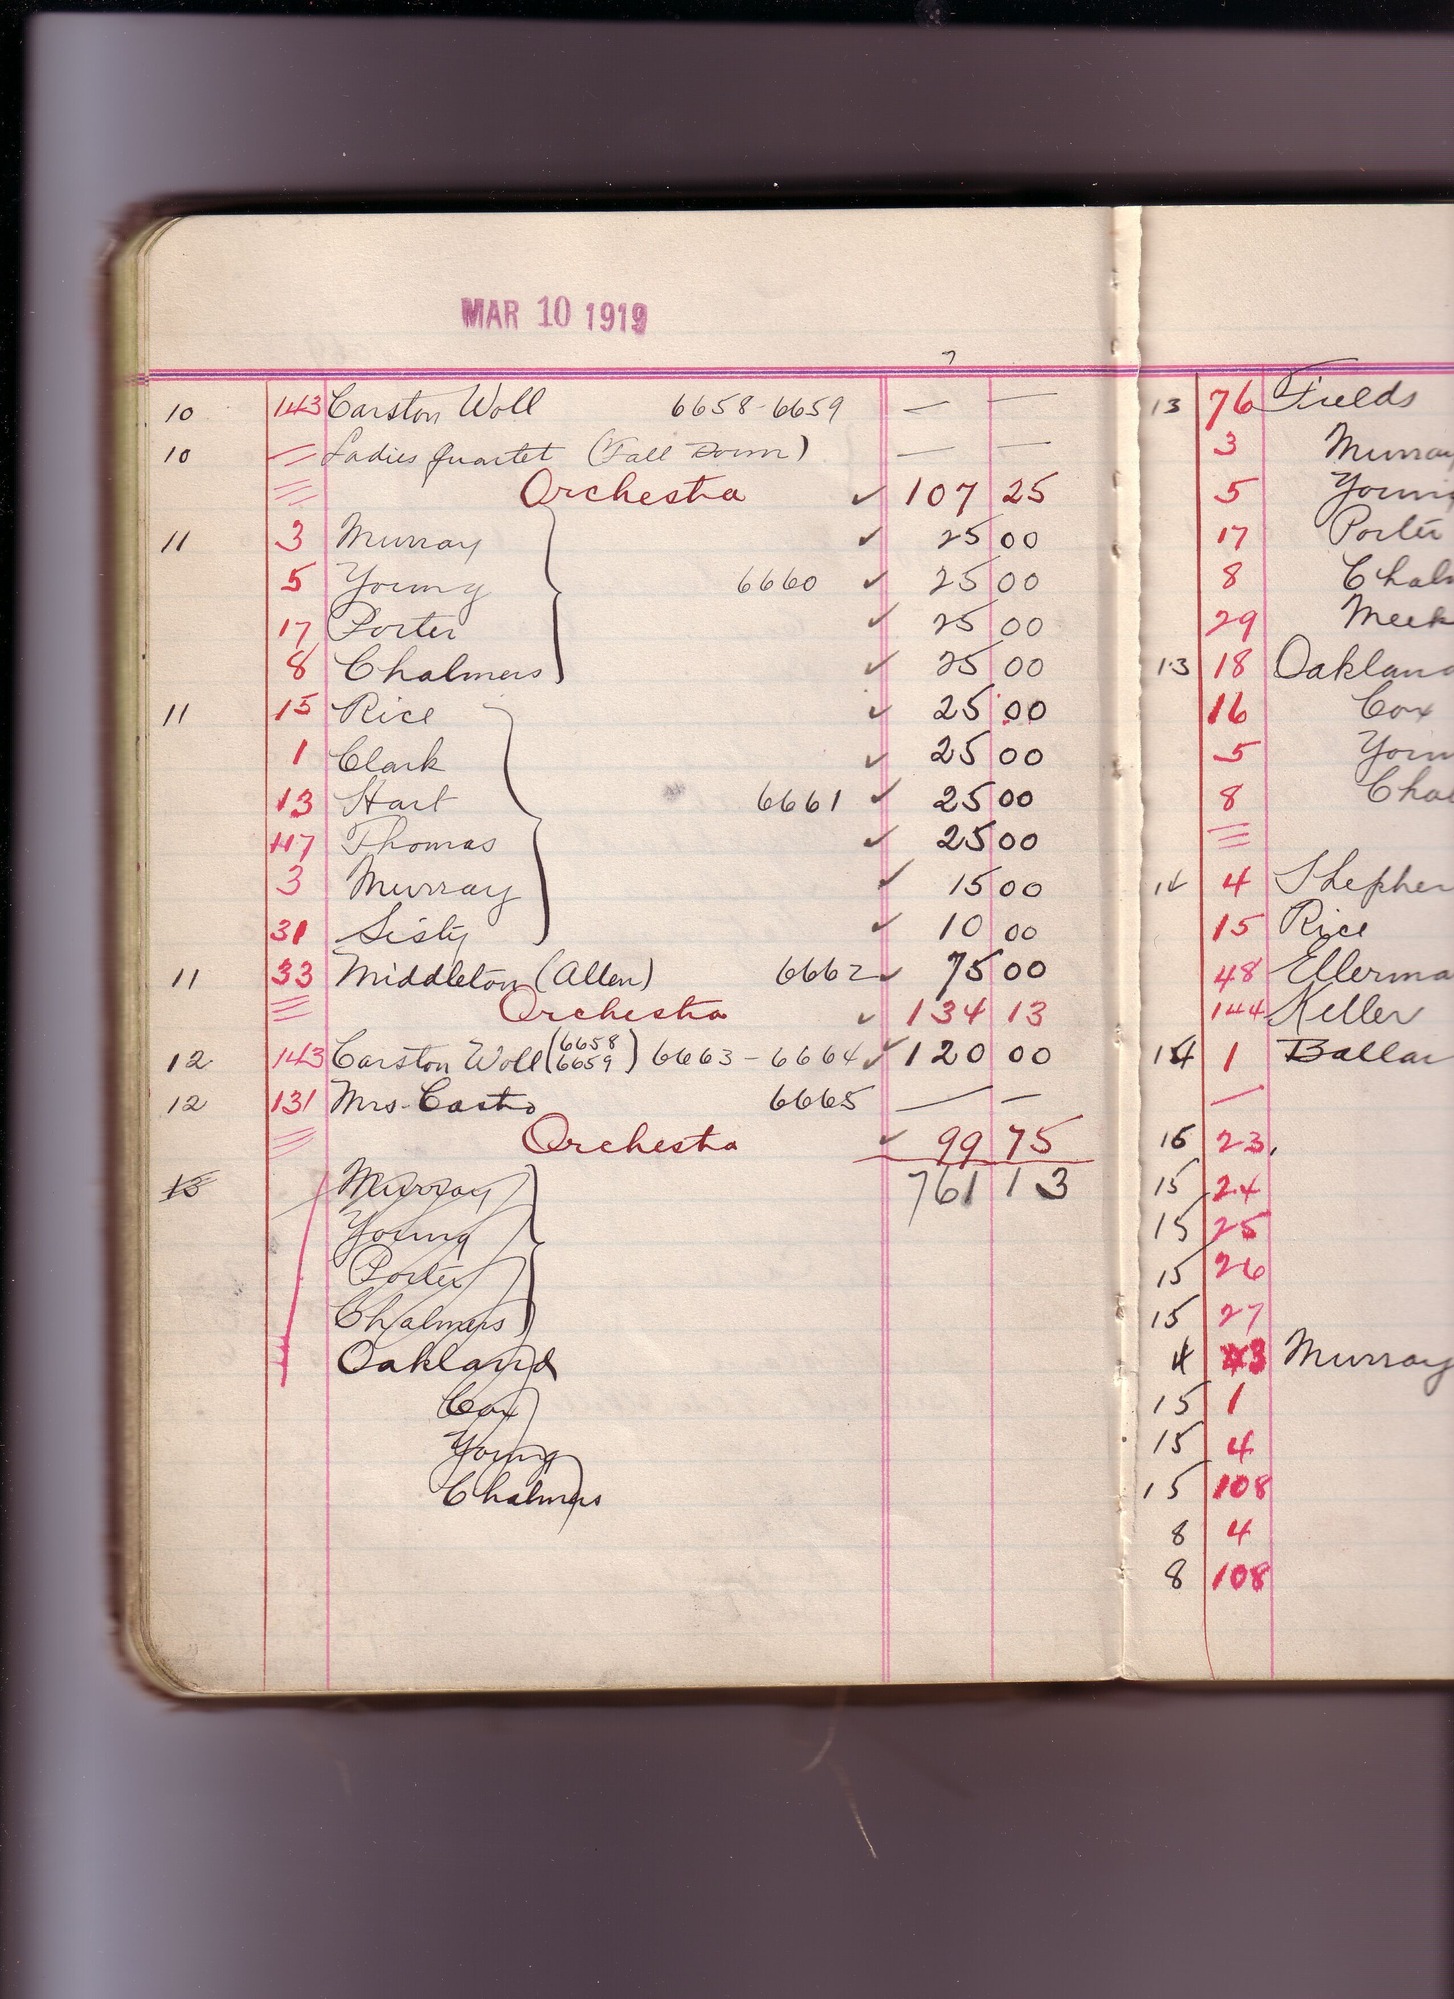 MAR 10 1919
7
10 143 Carston Woll 6658-6659 — —
10 Ladies Quartet (Fall Down) — —
Orchestra ✓ 107 25
11 3 Murray ✓ 25 00
5 Young 6660 ✓ 25 00
17 Porter ✓ 25 00
8 Chalmers ✓ 25 00
11 15 Rice ✓ 25 00
1 Clark ✓ 25 00
13 Hart 6661 ✓ 25 00
117 Thomas ✓ 25 00
3 Murray ✓ 15 00
31 Sisty ✓ 10 00
11 33 Middleton (Allen) 6662 ✓ 75 00
Orchestra ✓ 134 13
12 143 Carston Woll (6658 6659) 6663-6664 ✓ 120 00
12 131 Mrs. Castro 6665 — —
Orchestra ✓ 99 75
13 Murray 761 13
Young
Porter
Chalmers
Oakland
Cox
Young
Chalmers
13 76 Fields
3 Murray
5 Young
17 Porter
8 Chalm
29 Meek
13 18 Oakland
16 Cox
5 Youn
8 Chal
14 4 Shepher
15 Rice
48 Ellerma
144 Keller
14 1 Ballar
15 23
15 24
15 25
15 26
15 27
4 3 Murray
15 1
15 4
15 108
8 4
8 108